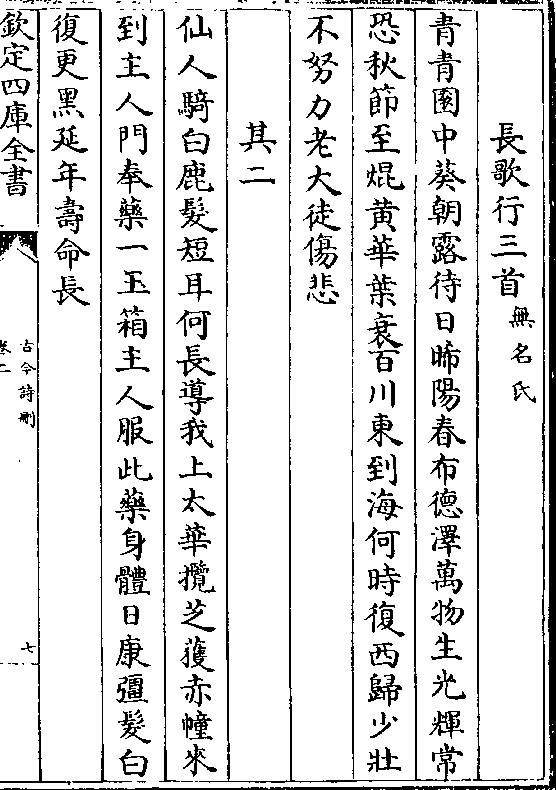 長歌行三首無名氏
青青園中葵朝露待日晞陽春布德澤萬物生光輝常
恐秋節至焜黄華葉衰百川東到海何時復西歸少壯
不努力老大徒傷悲
其二
仙人騎白鹿髮短耳何長導我上太華攬芝䕶赤幢來
到主人門奉藥一玉箱主人服此藥身體日康彊髮白
復更黑延年壽命長
欽定四庫全書
古今詩刪
卷二
七